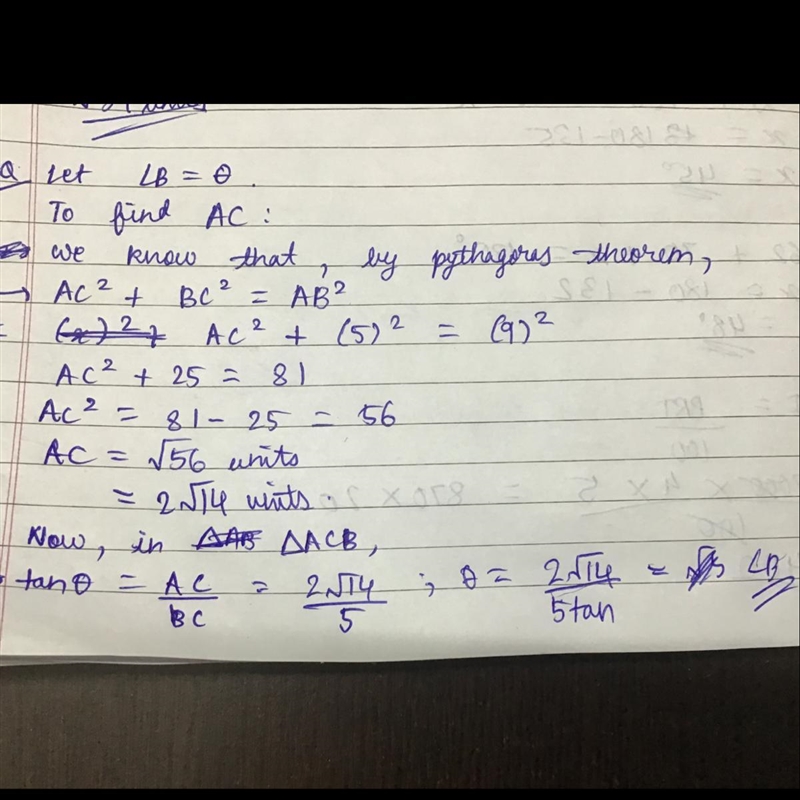 Q Let ∠B = θ.
To find AC :
we know that, by pythagoras theorem,
→ AC² + BC² = AB²
AC² + (5)² = (9)²
AC² + 25 = 81
AC² = 81 - 25 = 56
AC = √56 units
= 2√14 units.
Now, in ΔACB,
tanθ = AC/BC = 2√14/5 ; θ = 2√14/5tan = ∠B